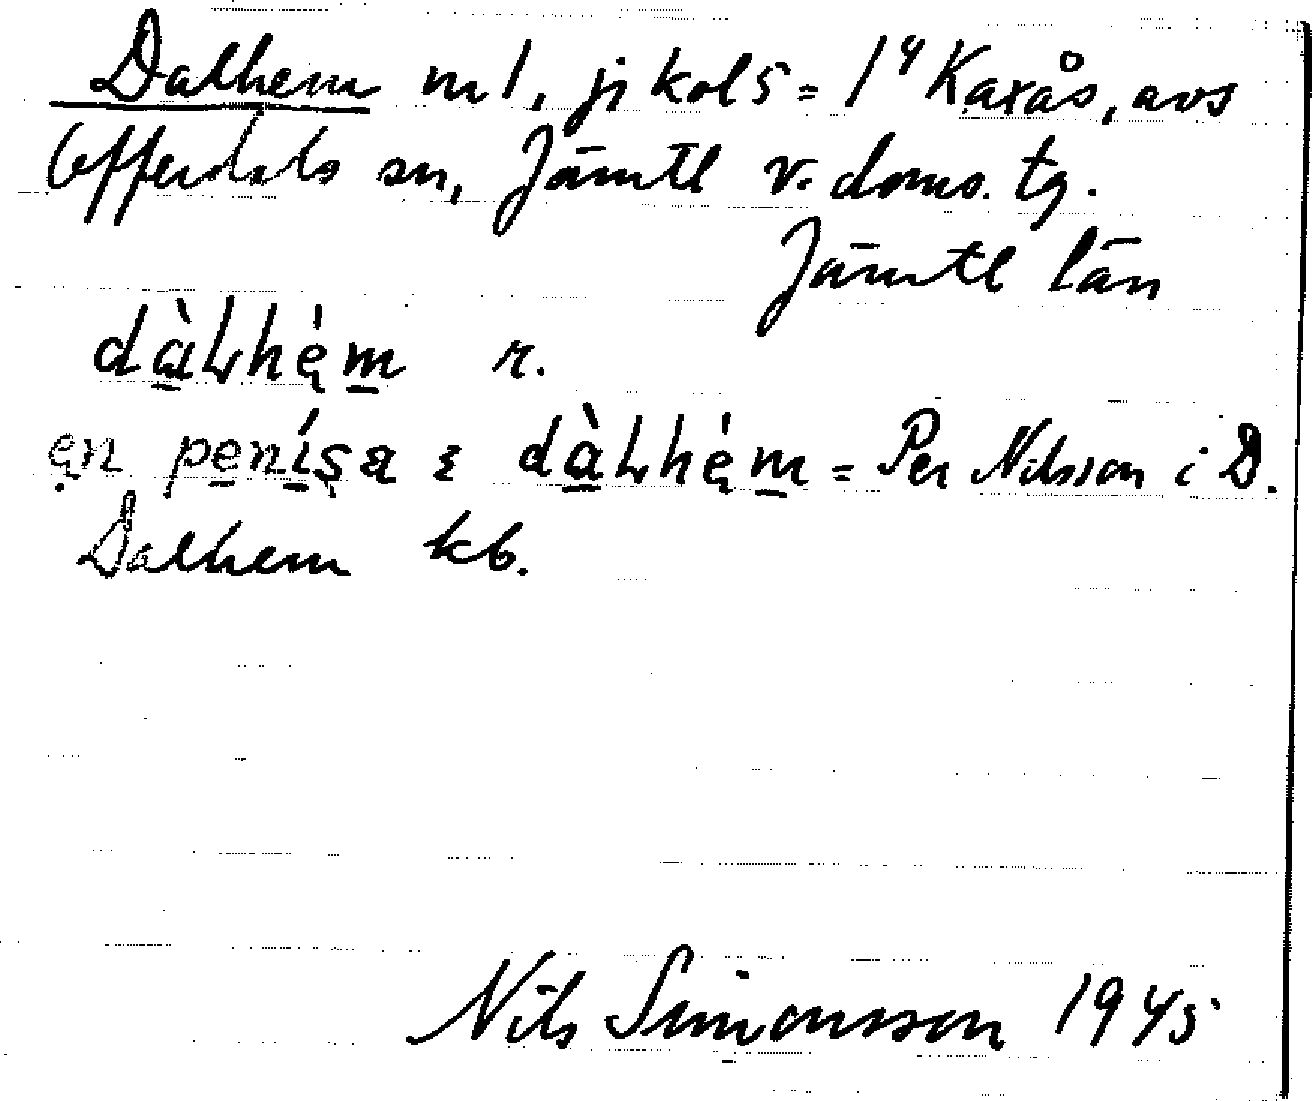 Dalhem m 1, jr kol 5 = 1⁴ Kaxås, avs
Offerdals sn, Jämtl v. doms. tg.
Jämtl län
dàLhém r.
en penísa i dàLhém = Per Nilsson i D.
Dalhem kb.
Nils Simonsson 1945